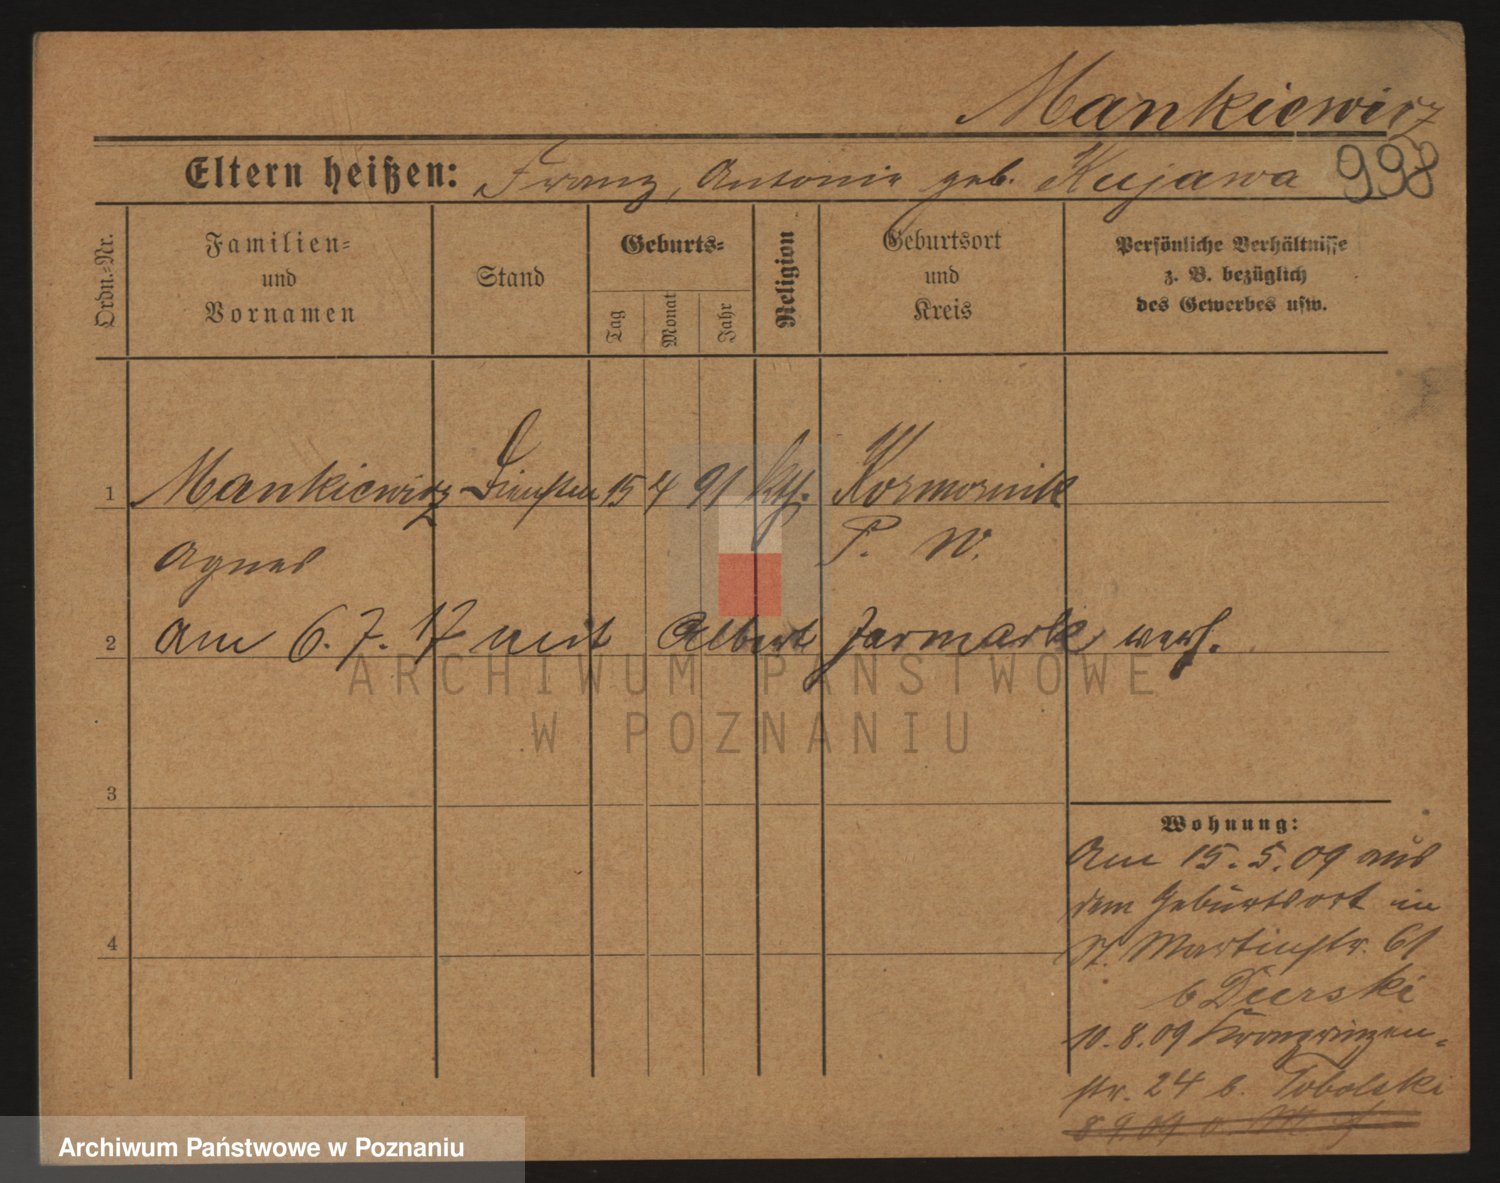 Mankiewicz
Eltern heißen: Franz, Antonie geb. Kujawa 998
Ordn.-Nr.
Familien-
und
Vornamen
Stand
Geburts-
Tag
Monat
Jahr
Religion
Geburtsort
und
Kreis
Persönliche Verhältnisse
z. B. bezüglich
des Gewerbes usw.
1 Mankiewicz 15 4 91 kth.
Agnes P. W.
2 am 6. 7. 17 mit Albert Jarmark verh.
3
4
Wohnung:
Am 15. 5. 09 aus
dem Geburtsort in
St. Martinstr. 61
b
10. 8. 09 Kronprinzen-
str. 24 b. Tobolski
8 9. 09
ARCHIWUM PAŃSTWOWE
W POZNANIU
Archiwum Państwowe w Poznaniu